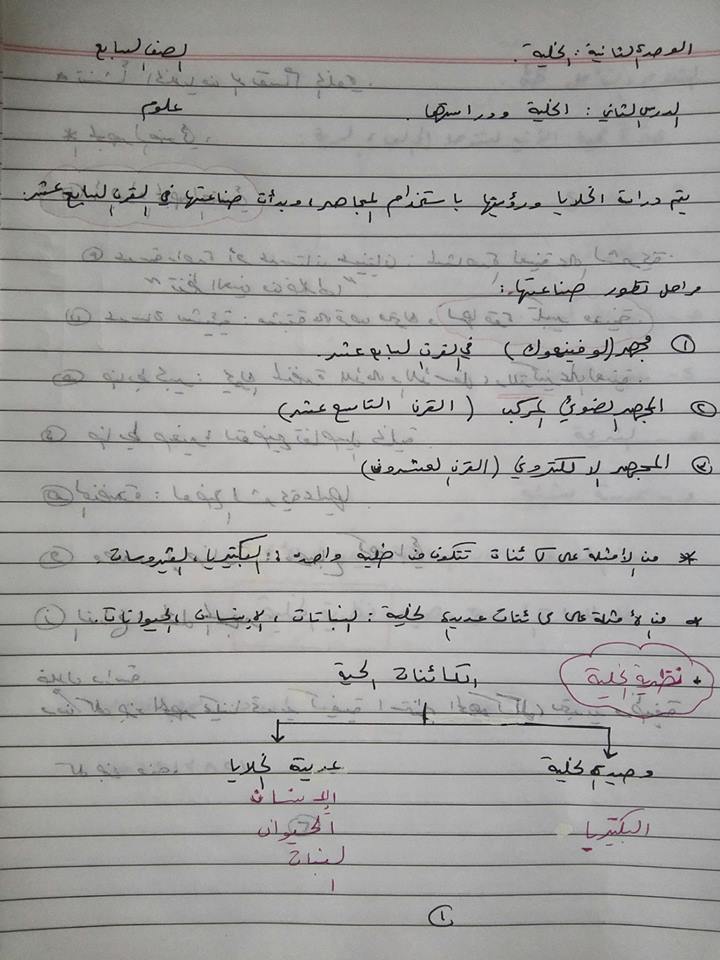 الوحدة الثانية: الخلية. الصف السابع
الدرس الثاني: الخلية ودراستها. علوم
يتم دراسة الخلايا ورؤيتها باستخدام المجاهر، وبدأت صناعتها في القرن السابع عشر.
مراحل تطور صناعتها:
١ مجهر (لوفينهوك) في القرن السابع عشر.
٢ المجهر الضوئي المركب (القرن التاسع عشر)
٣ المجهر الالكتروني (القرن العشرون)
* من الأمثلة على كائنات تتكون من خلية واحدة: البكتيريا، الفيروسات.
* من الأمثلة على كائنات عديدة الخلية: النباتات، الإنسان، الحيوانات.
* نظرية الخلية
الكائنات الحية
وحيدة الخلية عديدة الخلايا
البكتيريا الإنسان
الحيوان
النبات
١